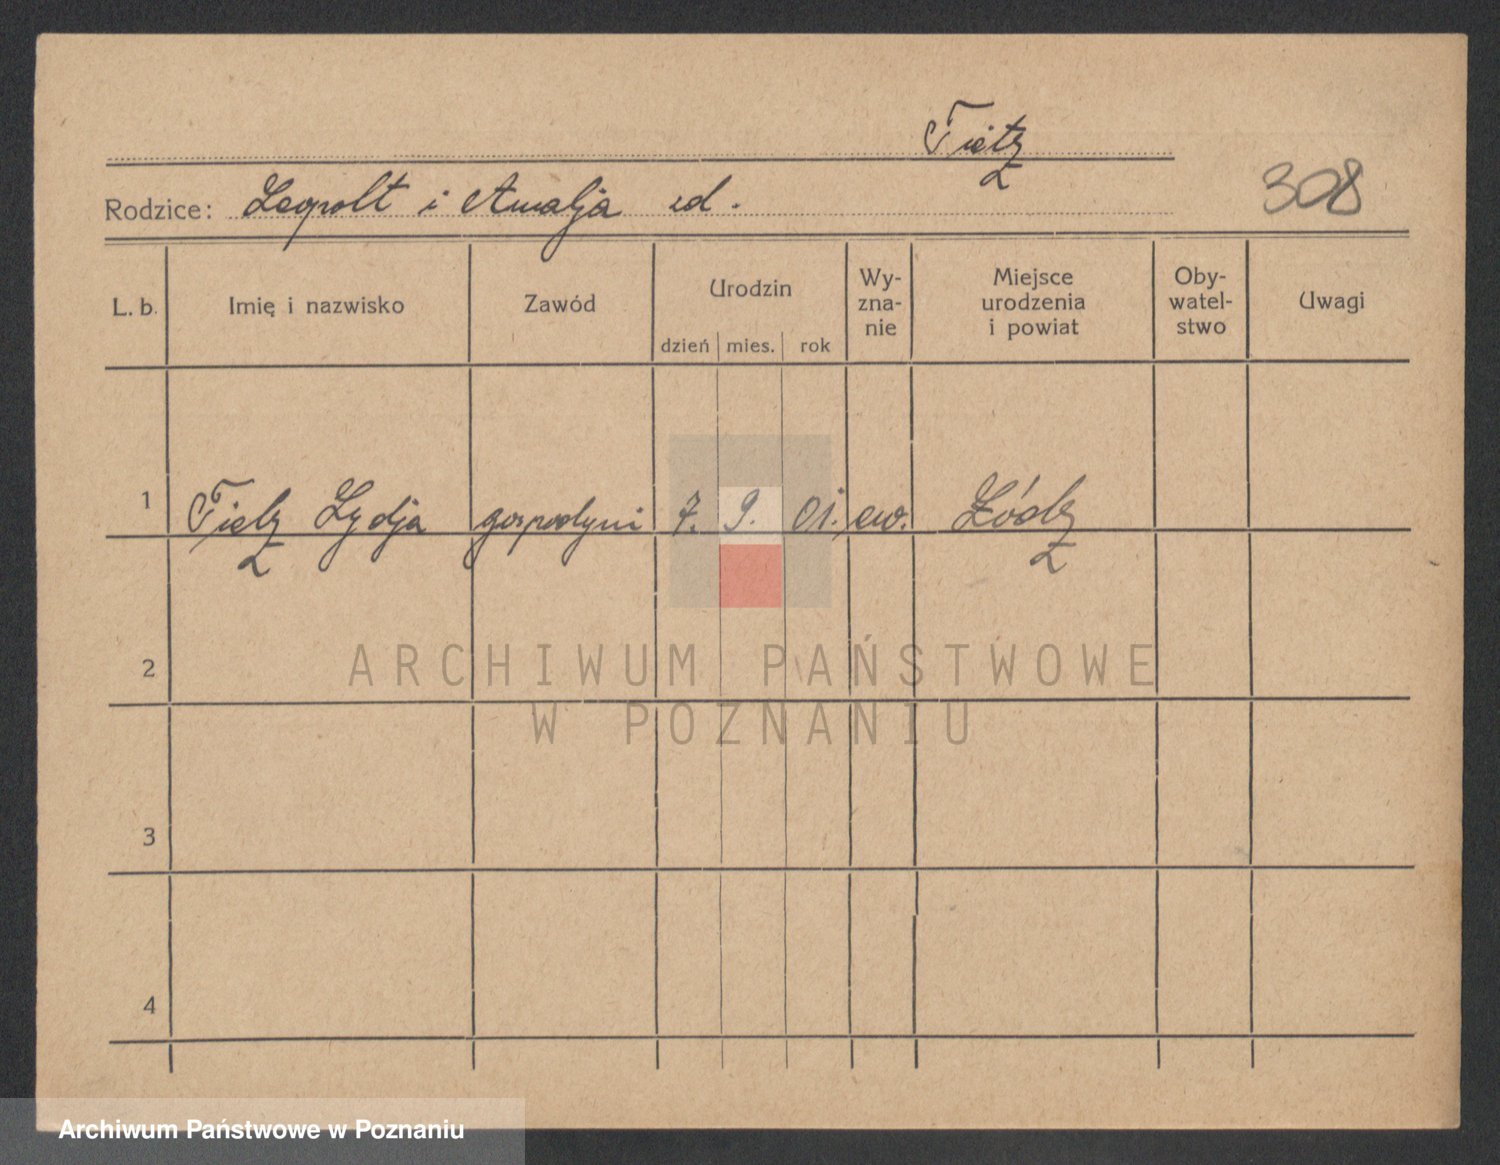 Tietz
308
Rodzice: Leopolt i Amalja zd.
L. b. Imię i nazwisko Zawód Urodzin dzień mies. rok Wy-zna-nie Miejsce urodzenia i powiat Oby-watel-stwo Uwagi
1 Tietz Lydja gospodyni 7. 9. 01. ew. Łódz
2
ARCHIWUM PAŃSTWOWE
W POZNANIU
3
4
Archiwum Państwowe w Poznaniu